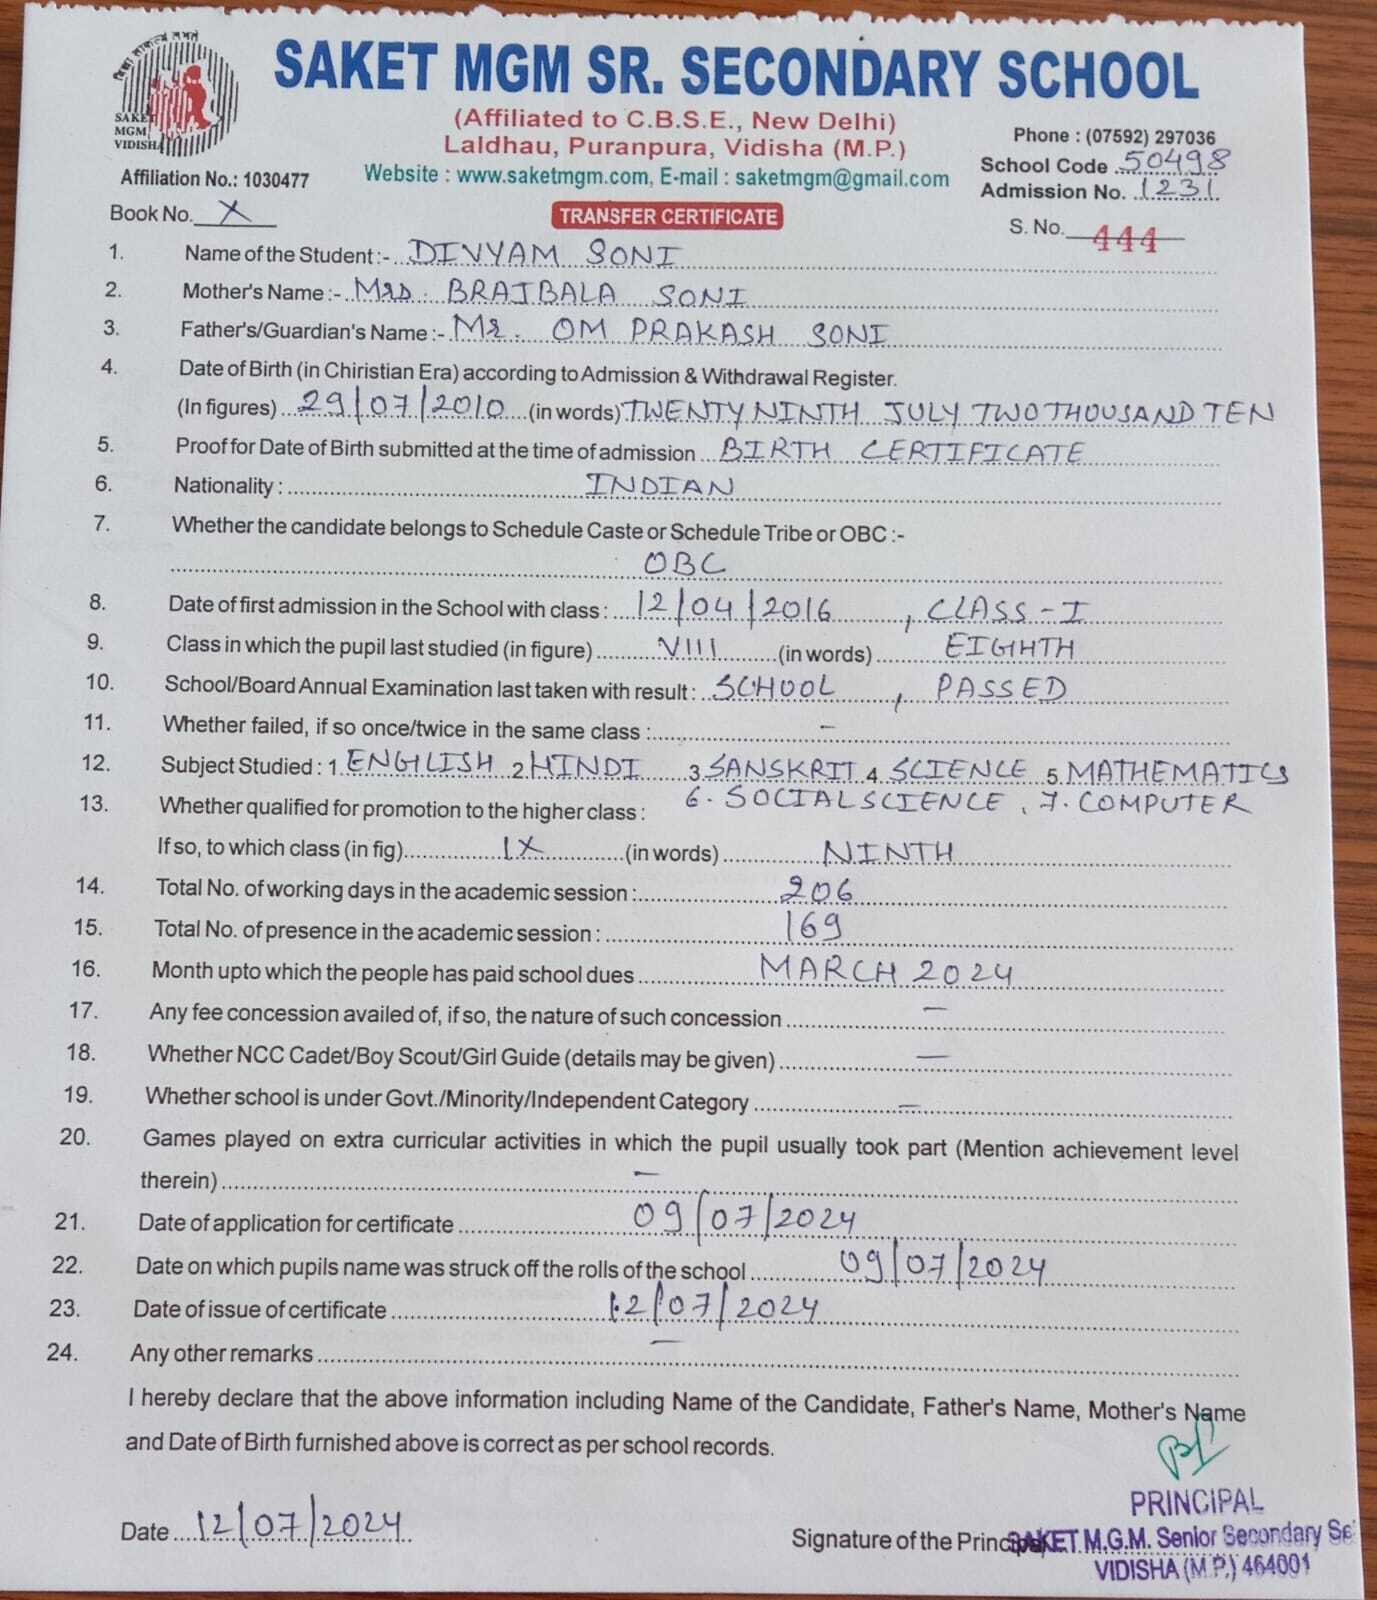 SAKET MGM SR. SECONDARY SCHOOL
(Affiliated to C.B.S.E., New Delhi)
Laldhau, Puranpura, Vidisha (M.P.)
Website : www.saketmgm.com, E-mail : saketmgm@gmail.com
SAKET
MGM
VIDISHA
Affiliation No.: 1030477
Phone : (07592) 297036
School Code 50498
Admission No. 1231
Book No. X
TRANSFER CERTIFICATE
S. No. 444
1. Name of the Student :- DIVYAM SONI
2. Mother's Name :- Mrs. BRAJBALA SONI
3. Father's/Guardian's Name :- Mr. OM PRAKASH SONI
4. Date of Birth (in Chiristian Era) according to Admission & Withdrawal Register.
(In figures) 29/07/2010 (in words) TWENTY NINTH JULY TWO THOUSAND TEN
5. Proof for Date of Birth submitted at the time of admission BIRTH CERTIFICATE
6. Nationality : INDIAN
7. Whether the candidate belongs to Schedule Caste or Schedule Tribe or OBC :-
OBC
8. Date of first admission in the School with class : 12/04/2016 , CLASS - I
9. Class in which the pupil last studied (in figure) VIII (in words) EIGHTH
10. School/Board Annual Examination last taken with result : SCHOOL , PASSED
11. Whether failed, if so once/twice in the same class : -
12. Subject Studied : 1. ENGLISH 2. HINDI 3. SANSKRIT 4. SCIENCE 5. MATHEMATICS
6. SOCIAL SCIENCE , 7. COMPUTER
13. Whether qualified for promotion to the higher class :
If so, to which class (in fig) IX (in words) NINTH
14. Total No. of working days in the academic session : 206
15. Total No. of presence in the academic session : 169
16. Month upto which the people has paid school dues MARCH 2024
17. Any fee concession availed of, if so, the nature of such concession -
18. Whether NCC Cadet/Boy Scout/Girl Guide (details may be given) -
19. Whether school is under Govt./Minority/Independent Category -
20. Games played on extra curricular activities in which the pupil usually took part (Mention achievement level
therein) -
21. Date of application for certificate 09/07/2024
22. Date on which pupils name was struck off the rolls of the school 09/07/2024
23. Date of issue of certificate 12/07/2024
24. Any other remarks -
I hereby declare that the above information including Name of the Candidate, Father's Name, Mother's Name
and Date of Birth furnished above is correct as per school records.
PRINCIPAL
Date 12/07/2024
Signature of the Principal
SAKET M.G.M. Senior Secondary
VIDISHA (M.P.) 464001